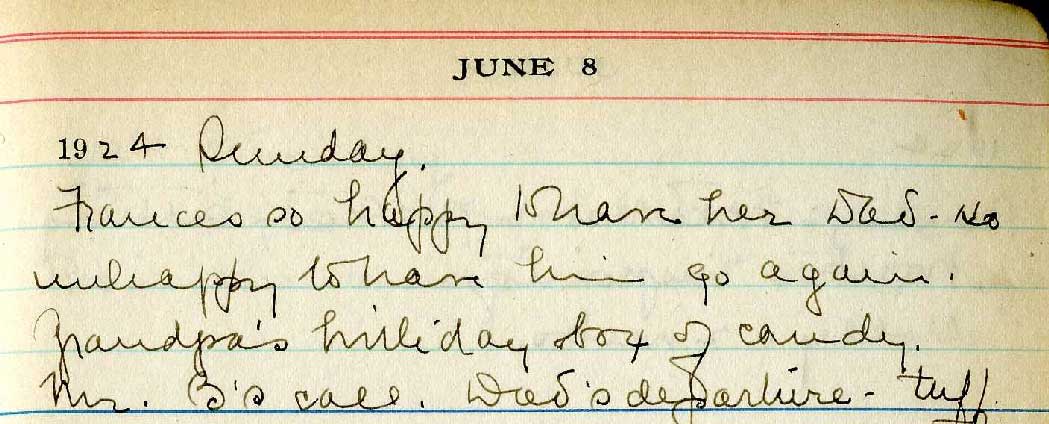 JUNE 8
1924 Sunday.
Frances so happy to have her Dad - so
unhappy to have him go again.
Grandpa's box of candy.
Mr. B's call. Dad's departure - tuff